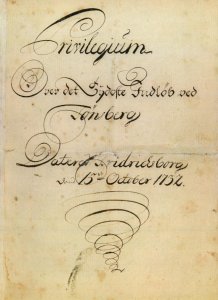 Privilegium
Over det Sydeste Indløb ved
Tønberg
Dateret Fridrichsborg
d. 15de October 1732.